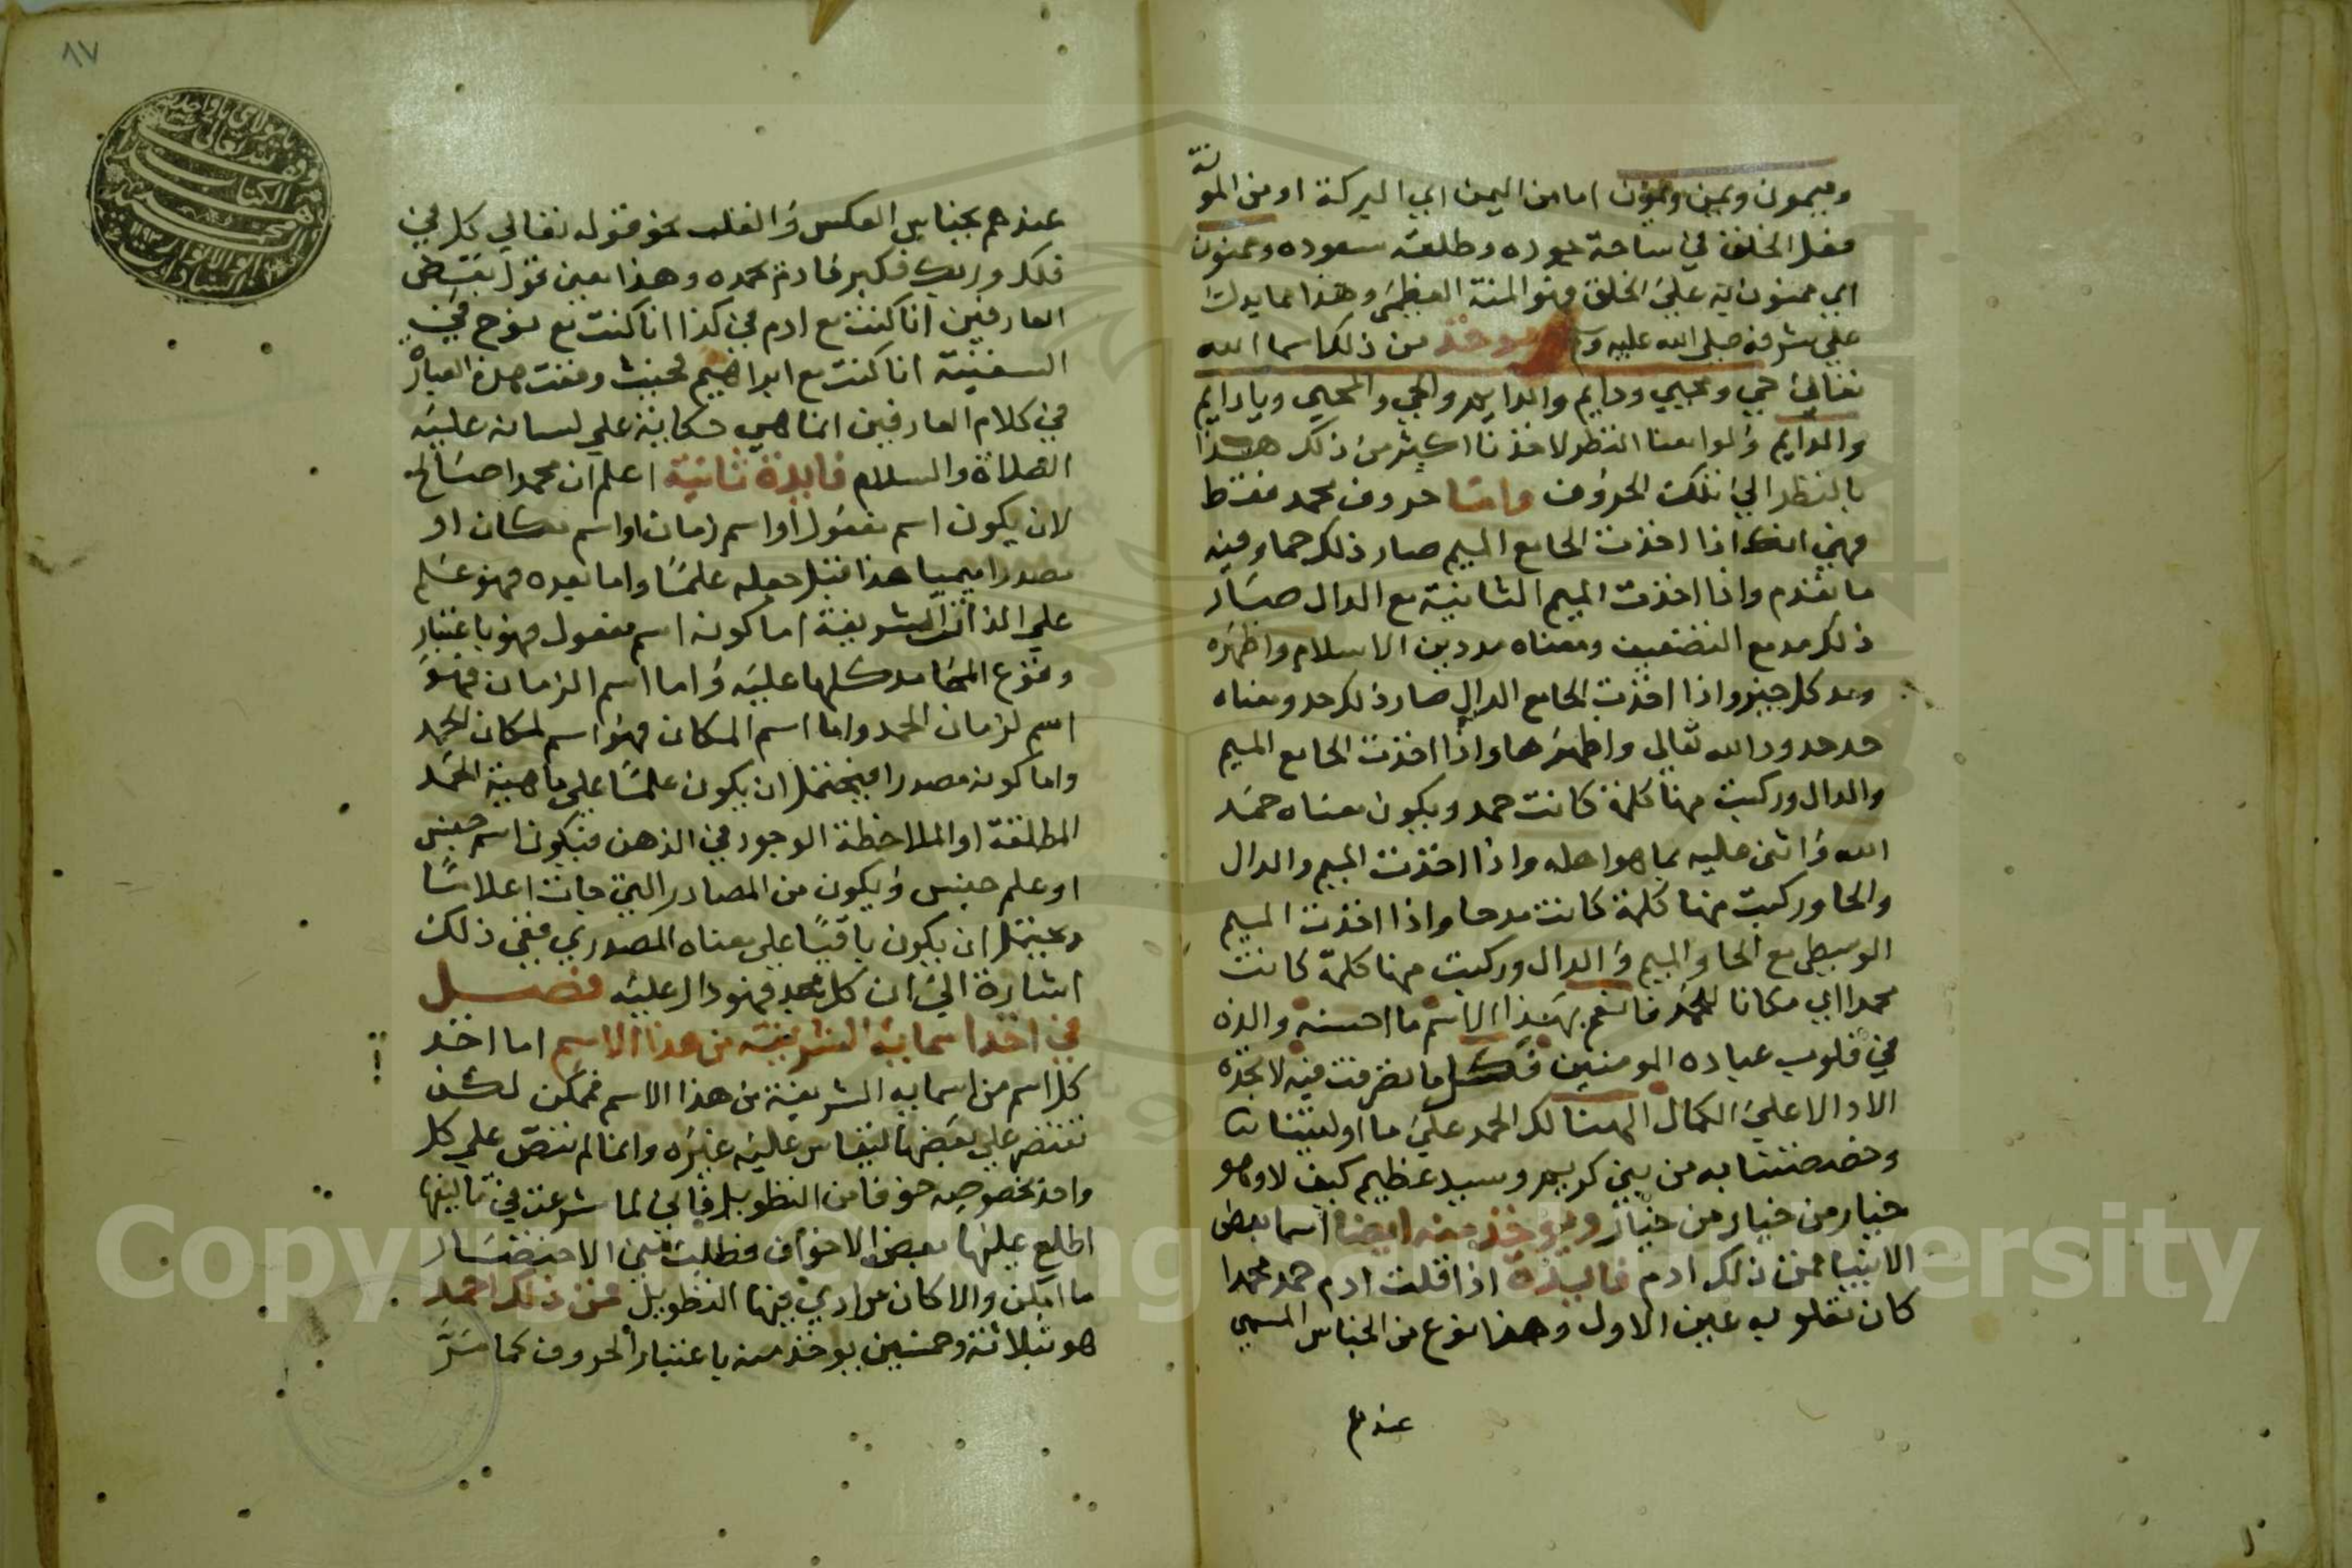 وميمون ويمين وممنون اما من اليمن اي البركة او من المونة
فعل الخلق في ساحة جوده وطلعة سعوده وممنون
اي ممنون به علي الخلق فهو المنة العظمي وهذا مما يدلك
علي شرفه صلي الله عليه وسلم ويوخذ من ذلك اسما الله
تعالي حي ومحيي ودايم والدايم والحي والمحيي ويادايم
والدايم ولو امعنا النظر لاخذنا اكثر من ذلك هذا
بالنظر الي تلك الحروف واما حروف محمد فقط
فهي انك اذا اخذت الحا مع الميم صار ذلك حما وفيه
ما تقدم واذا اخذت الميم الثانية مع الدال صار
ذلك مد مع التضعيف ومعناه مد دين الاسلام واظهره
ومد كل خير واذا اخذت الحا مع الدال صار ذلك حد ومعناه
حد حدود الله تعالي واظهرها واذا اخذت الحا مع الميم
والدال وركبت منها كلمة كانت حمد ويكون معناه حمد
الله واثني عليه بما هو اهله واذا اخذت الميم والدال
والحا وركبت منها كلمة كانت مدحا واذا اخذت الميم
الوسطي مع الحا والميم والدال وركبت منها كلمة كانت
محمدا اي مكانا للحمد فانعم بهذا الاسم ما احسنه والذه
في قلوب عباده المومنين فكل ما تصرفت فيه لا تجده
الا دالا علي الكمال الهنا لك الحمد علي ما اوليتنا
وخصصتنا به من نبي كريم وسيد عظيم كيف لا وهو
خيار من خيار من خيار ويوخذ منه ايضا اسما بعض
الانبيا فمن ذلك ادم فايدة اذا قلت ادم حمد محمدا
كان مقلوبه عين الاول وهذا نوع من الجناس المسمي
عندهم
٨٧
عندهم بجناس العكس والقلب نحو قوله تعالي كل في
فلك وربك فكبر فادم محمده وهذا معني قول بعض
العارفين انا كنت مع ادم في كذا انا كنت مع نوح في
السفينة انا كنت مع ابراهيم فحيث وقعت هذه العبارة
في كلام العارفين انما هي حكاية علي لسانه عليه
الصلاة والسلام فايدة ثانية اعلم ان محمدا صالح
لان يكون اسم مفعول او اسم زمان او اسم مكان او
مصدرا ميميا هذا قبل جعله علما واما بعده فهو علم
علي الذات الشريفة اما كونه اسم مفعول فهو باعتبار
وقوع المحامد كلها عليه واما اسم الزمان فهو
اسم لزمان الحمد واما اسم المكان فهو اسم لمكان الحمد
واما كونه مصدرا فيحتمل ان يكون علما علي ماهية الحمد
المطلقة او الملاحظة الوجود في الذهن فيكون اسم جنس
او علم جنس ويكون من المصادر التي جات اعلاما
ويحتمل ان يكون باقيا علي معناه المصدري ففي ذلك
اشارة الي ان كل حمد فهو دال عليه فصل
في اخذ اسمايه الشريفة من هذا الاسم اما اخذ
كل اسم من اسمايه الشريفة من هذا الاسم فممكن لكن
نقتصر علي بعضها ليقاس عليه غيره وانما لم ننص علي كل
واحد بخصوصه خوفا من التطويل فاني لما شرعت في تاليفها
اطلع عليها بعض الاخوان وطلب مني الاختصار
ما امكن والا كان مرادي فيها التطويل فمن ذلك احمد
هو بثلاثة وخمسين يوخذ منه باعتبار الحروف كما مر
Copyright © King Saud University